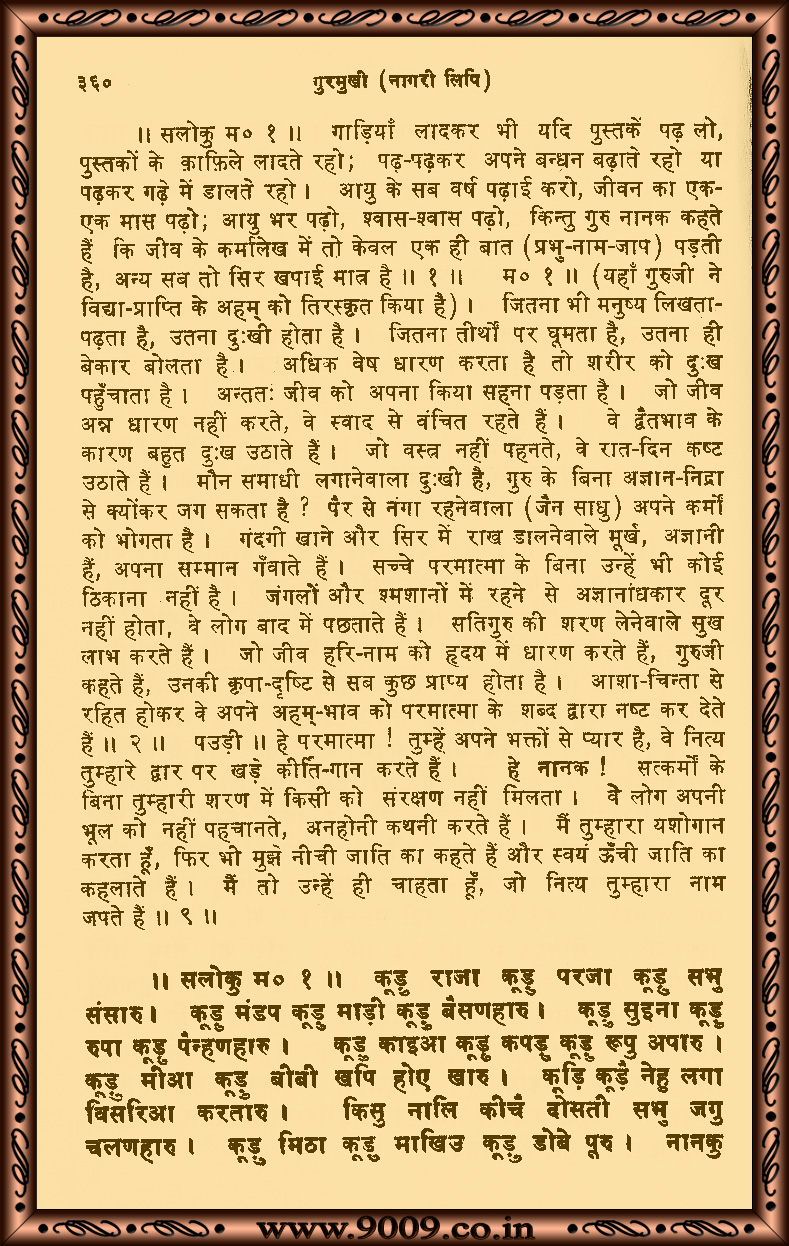 ३६० गुरमुखी (नागरी लिपि)
॥ सलोकु म० १ ॥ गाड़ियाँ लादकर भी यदि पुस्तकें पढ़ लो,
पुस्तकों के क़ाफ़िले लादते रहो; पढ़-पढ़कर अपने बन्धन बढ़ाते रहो या
पढ़कर गढ़े में डालते रहो। आयु के सब वर्ष पढ़ाई करो, जीवन का एक-
एक मास पढ़ो; आयु भर पढ़ो, श्वास-श्वास पढ़ो, किन्तु गुरु नानक कहते
हैं कि जीव के कर्मालेख में तो केवल एक ही बात (प्रभु-नाम-जाप) पड़ती
है, अन्य सब तो सिर खपाई मात्र है॥ १॥ म० १॥ (यहाँ गुरुजी ने
विद्या-प्राप्ति के अहम् को तिरस्कृत किया है)। जितना भी मनुष्य लिखता-
पढ़ता है, उतना दुःखी होता है। जितना तीर्थों पर घूमता है, उतना ही
बेकार बोलता है। अधिक वेष धारण करता है तो शरीर को दुःख
पहुँचाता है। अन्ततः जीव को अपना किया सहना पड़ता है। जो जीव
अन्न धारण नहीं करते, वे स्वाद से वंचित रहते हैं। वे द्वैतभाव के
कारण बहुत दुःख उठाते हैं। जो वस्त्र नहीं पहनते, वे रात-दिन कष्ट
उठाते हैं। मौन समाधी लगानेवाला दुःखी है, गुरु के बिना अज्ञान-निद्रा
से क्योंकर जग सकता है? पैर से नंगा रहनेवाला (जैन साधु) अपने कर्मों
को भोगता है। गंदगी खाने और सिर में राख डालनेवाले मूर्ख, अज्ञानी
हैं, अपना सम्मान गँवाते हैं। सच्चे परमात्मा के बिना उन्हें भी कोई
ठिकाना नहीं है। जंगलों और श्मशानों में रहने से अज्ञानांधकार दूर
नहीं होता, वे लोग बाद में पछताते हैं। सतिगुरु की शरण लेनेवाले सुख
लाभ करते हैं। जो जीव हरि-नाम को हृदय में धारण करते हैं, गुरुजी
कहते हैं, उनकी कृपा-दृष्टि से सब कुछ प्राप्य होता है। आशा-चिन्ता से
रहित होकर वे अपने अहम्-भाव को परमात्मा के शब्द द्वारा नष्ट कर देते
हैं॥ २॥ पउड़ी॥ हे परमात्मा! तुम्हें अपने भक्तों से प्यार है, वे नित्य
तुम्हारे द्वार पर खड़े कीर्ति-गान करते हैं। हे नानक! सत्कर्मों के
बिना तुम्हारी शरण में किसी को संरक्षण नहीं मिलता। वे लोग अपनी
भूल को नहीं पहचानते, अनहोनी कथनी करते हैं। मैं तुम्हारा यशोगान
करता हूँ, फिर भी मुझे नीची जाति का कहते हैं और स्वयं ऊँची जाति का
कहलाते हैं। मैं तो उन्हें ही चाहता हूँ, जो नित्य तुम्हारा नाम
जपते हैं॥ ९॥
॥ सलोकु म० १ ॥ कूड़ु राजा कूड़ु परजा कूड़ु सभु
संसारु। कूड़ु मंडप कूड़ु माड़ी कूड़ु बैसणहारु। कूड़ु सुइना कूड़ु
रुपा कूड़ु पैन्हणहारु। कूड़ु काइआ कूड़ु कपड़ु कूड़ु रूपु अपारु।
कूड़ु मीआ कूड़ु बीबी खपि होए खारु। कूड़ि कूड़ै नेहु लगा
विसरिआ करतारु। किसु नालि कीचै दोसती सभु जगु
चलणहारु। कूड़ु मिठा कूड़ु माखिउ कूड़ु डोबे पूरु। नानकु
www.9009.co.in